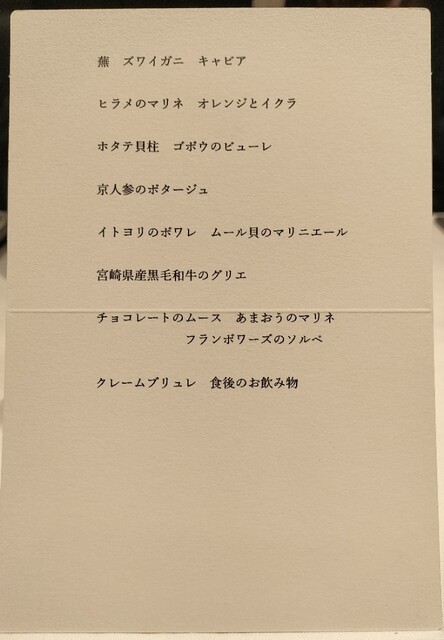 蕪　ズワイガニ　キャビア
ヒラメのマリネ　オレンジとイクラ
ホタテ貝柱　ゴボウのピューレ
京人参のポタージュ
イトヨリのポワレ　ムール貝のマリニエール
宮崎県産黒毛和牛のグリエ
チョコレートのムース　あまおうのマリネ
フランボワーズのソルベ
クレームブリュレ　食後のお飲み物